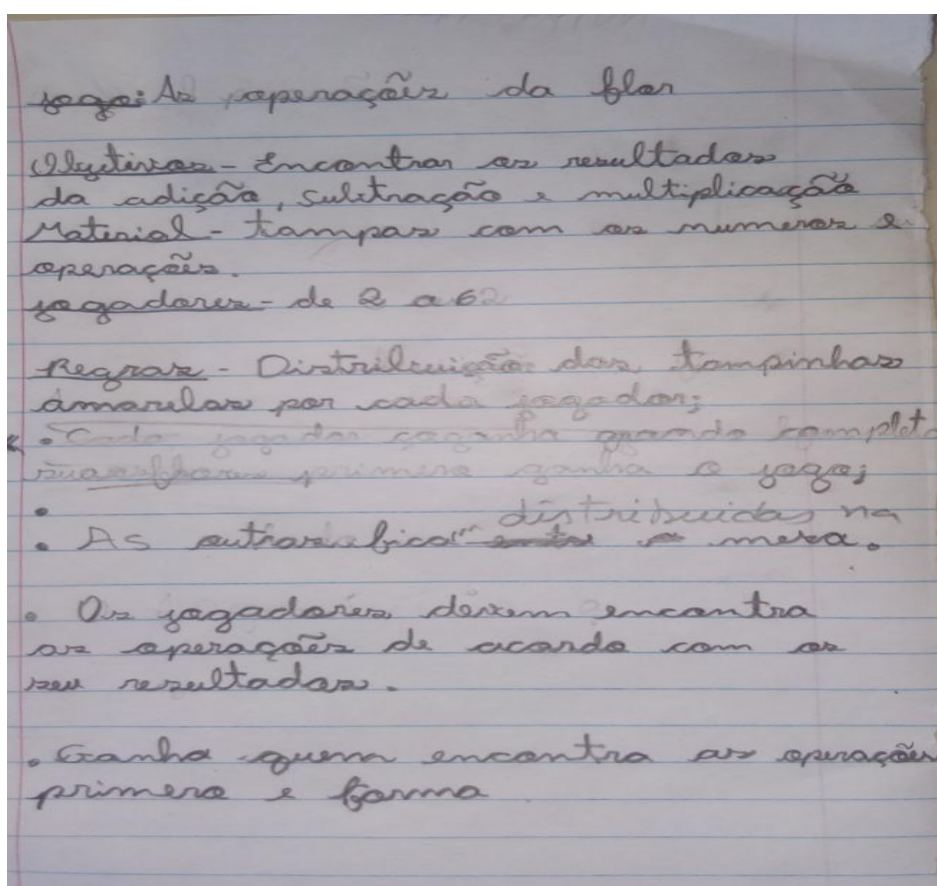 jogo: As operações da flor
Objetivos - Encontrar os resultados
da adição, subtração e multiplicação
Material - tampas com os numeros e
operações.
jogadores - de 2 a 6
Regras - Distribuição das tampinhas
amarelas por cada jogador;
• Cada jogador ganha quando complet
sua primero ganha o jogo;
•
distribuidas na
• As outras fica mesa.
• Os jogadores devem encontra
as operações de acordo com os
seu resultados.
• Ganha quem encontra as operações
primero e forma